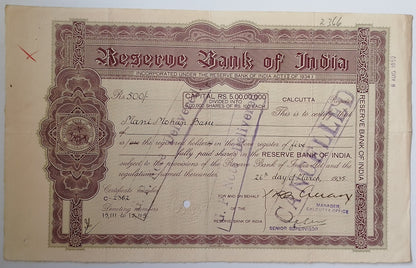 2366
Reserve Bank of India
INCORPORATED UNDER THE RESERVE BANK OF INDIA ACT (II OF 1934)
Rs. 500/-
CAPITAL RS. 5,00,00,000
DIVIDED INTO
5,00,000 SHARES OF RS. 100 EACH
CALCUTTA
This is to certify that
Mani Mohan Basu
are the registered holders in the register of five
fully paid shares in the RESERVE BANK OF INDIA,
subject to the provisions of the Reserve Bank of India Act and the
regulations framed thereunder.
26th day of March 1935.
Certificate
C-2362
Denoting numbers
FOR AND ON BEHALF
OF THE
RESERVE BANK OF INDIA
MANAGER,
CALCUTTA OFFICE
SENIOR SUPERVISOR
RESERVE BANK OF INDIA
CANCELLED